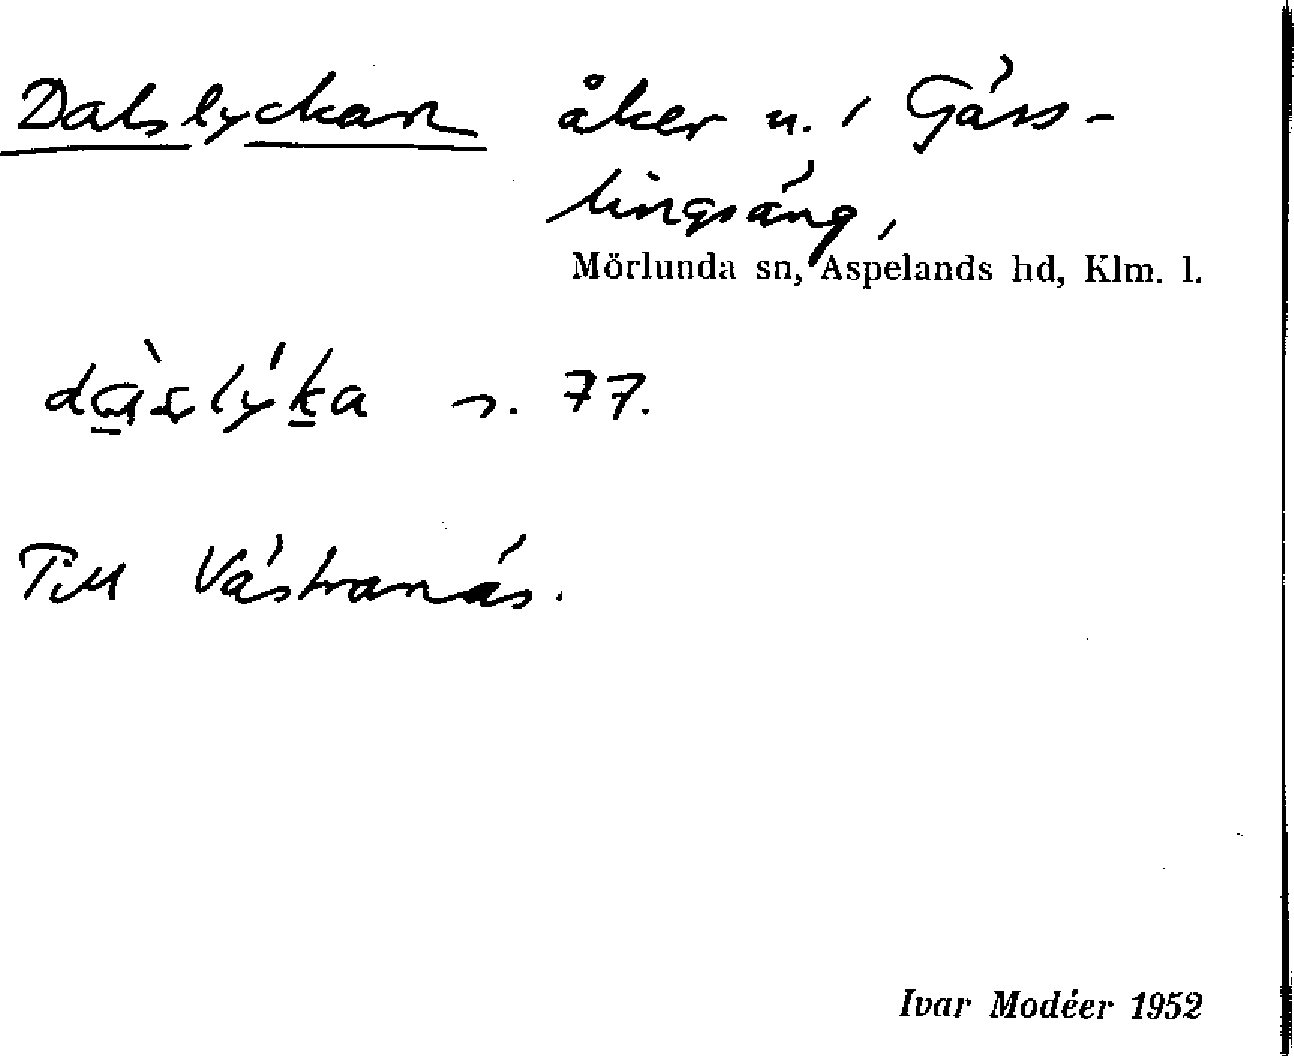 Dalslyckan åker n. i Gäss-
lingsäng,
Mörlunda sn, Aspelands hd, Klm. l.
s. 77.
Till Västranäs.
Ivar Modéer 1952